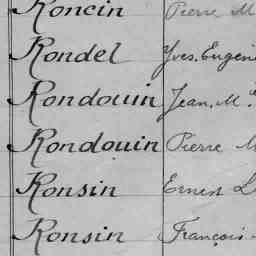 Roncin Pierre M
Rondel Yves. Eugène
Rondouin Jean. M.
Rondouin Pierre M
Ronsin Ernest L
Ronsin François